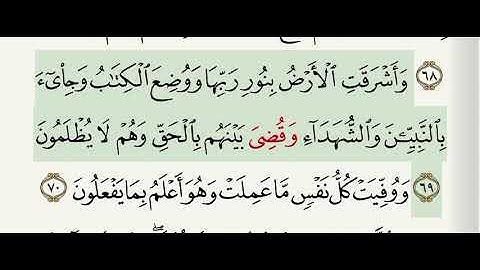 ٦٨ وَأَشْرَقَتِ ٱلْأَرْضُ بِنُورِ رَبِّهَا وَوُضِعَ ٱلْكِتَٰبُ وَجِا۟ىٓءَ
بِٱلنَّبِيِّـۧنَ وَٱلشُّهَدَآءِ وَقُضِىَ بَيْنَهُم بِٱلْحَقِّ وَهُمْ لَا يُظْلَمُونَ
٦٩ وَوُفِّيَتْ كُلُّ نَفْسٍ مَّا عَمِلَتْ وَهُوَ أَعْلَمُ بِمَا يَفْعَلُونَ ٧٠